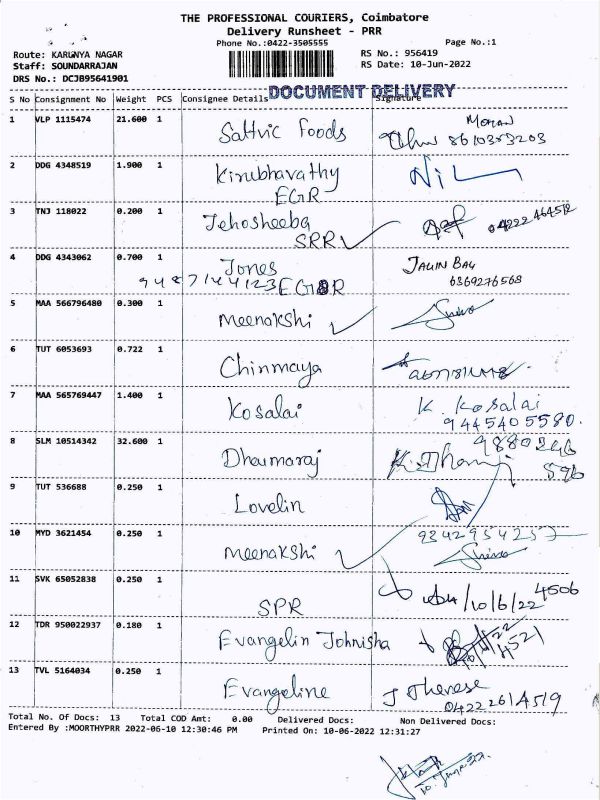 THE PROFESSIONAL COURIERS, Coimbatore
Delivery Runsheet - PRR
Phone No.:0422-3505555 Page No.:1
Route: KARUNYA NAGAR RS No.: 956419
Staff: SOUNDARRAJAN RS Date: 10-Jun-2022
DRS No.: DCJB95641901
DOCUMENT DELIVERY
S No Consignment No Weight PCS Consignee Details Signature
1 VLP 1115474 21.600 1 Sattvic Foods MOHAN
8610383203
2 DDG 4348519 1.900 1 Kirubhavathy Nil
EGR
3 TNJ 118022 0.200 1 Jehosheeba 04222464512
SRR
4 DDG 4343062 0.700 1 Jones
9487144123 EGR 6369276568
5 MAA 566796480 0.300 1 Meenakshi
6 TUT 6053693 0.722 1 Chinmaya
7 MAA 565769447 1.400 1 Kosalai K. Kosalai
9445405580.
8 SLM 10514342 32.600 1 Dharmaraj 9880246
596
9 TUT 536688 0.250 1 Lovelin
10 MYD 3621454 0.250 1 Meenakshi 9342954257
11 SVK 65052838 0.250 1 SPR 10/6/22 4506
12 TDR 950022937 0.180 1 Evangelin Johnisha 4521
13 TVL 5164034 0.250 1 Evangeline J Therese
04222614519
Total No. Of Docs: 13 Total COD Amt: 0.00 Delivered Docs: Non Delivered Docs:
Entered By :MOORTHYPRR 2022-06-10 12:30:46 PM Printed On: 10-06-2022 12:31:27